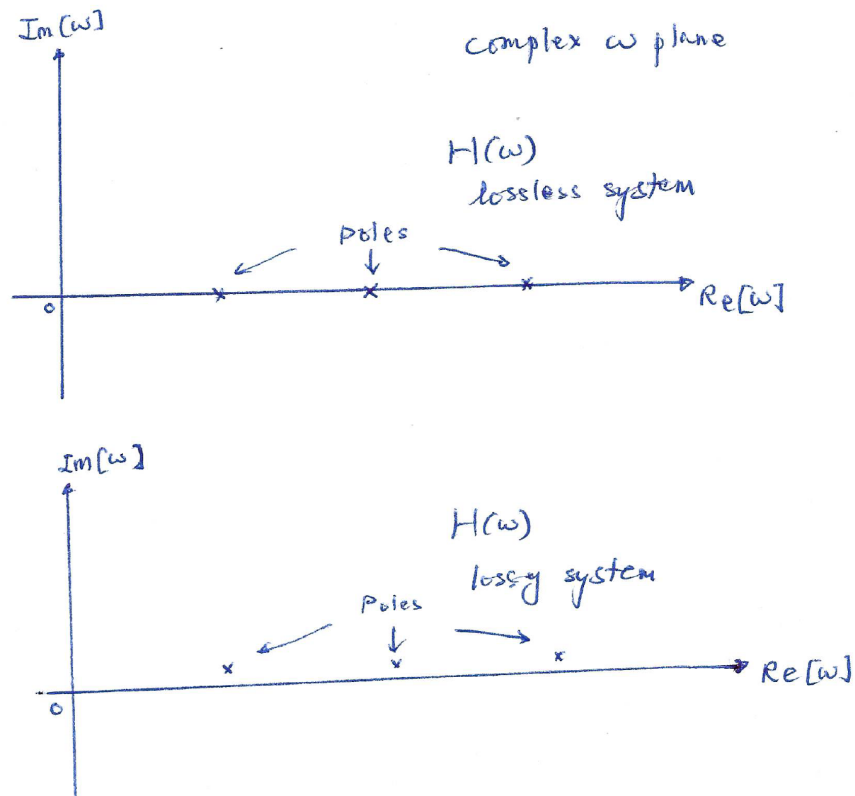 Im[ω]
complex ω plane
H(ω)
lossless system
Poles
0
Re[ω]
Im[ω]
H(ω)
lossy system
Poles
0
Re[ω]